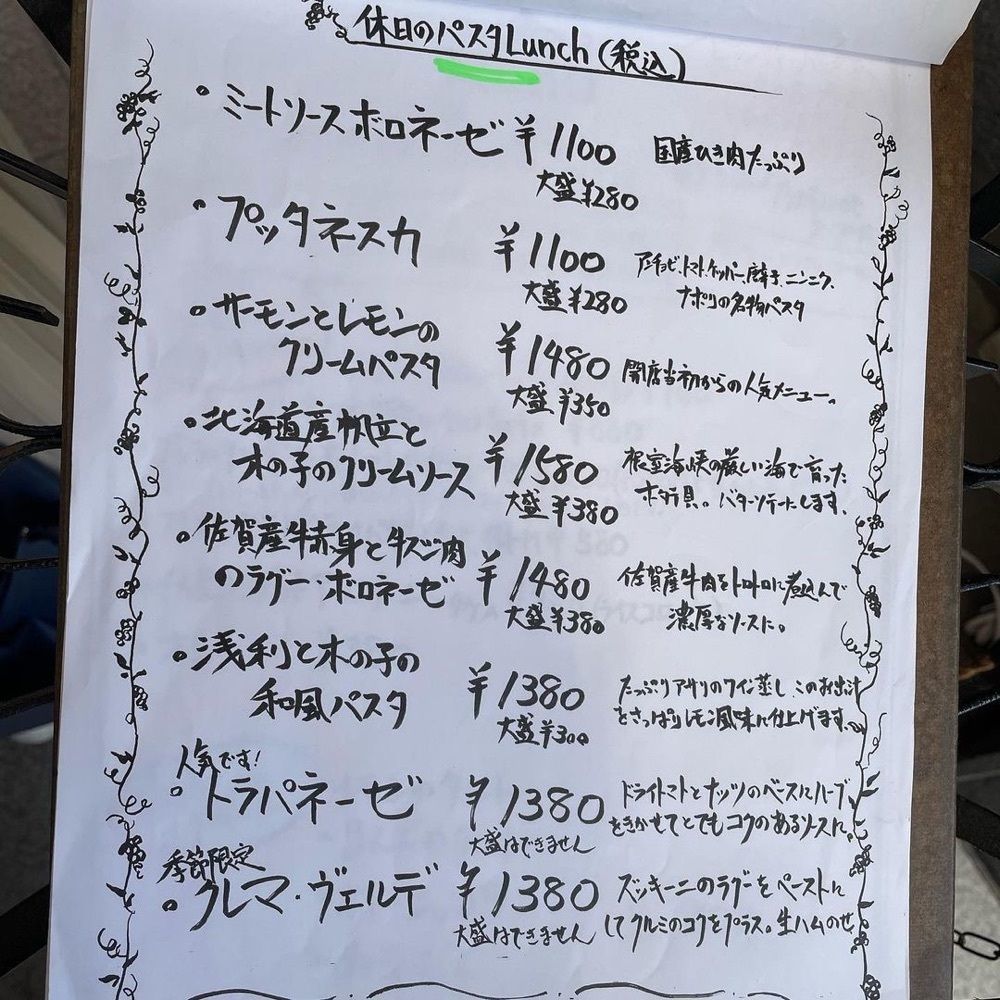 休日のパスタLunch(税込)
・ミートソースボロネーゼ ¥1100 国産ひき肉たっぷり
大盛¥280
・プッタネスカ ¥1100 アンチョビ、トマト、ケッパー、唐辛子、ニンニク、
大盛¥280 ナポリの名物パスタ
・サーモンとレモンの
クリームパスタ ¥1480 開店当初からの人気メニュー。
大盛¥350
・北海道産帆立と
木の子のクリームソース ¥1580 根室海峡の厳しい海で育った
大盛¥380 ホタテ貝。バターソテーにします。
・佐賀産牛赤身と牛スジ肉
のラグー・ボロネーゼ ¥1480 佐賀産牛肉をトロトロに煮込んで
大盛¥380 濃厚なソースに。
・浅利と木の子の
和風パスタ ¥1380 たっぷりアサリのワイン蒸し このお出汁
大盛¥300 をさっぱりレモン風味に仕上げます。
人気です!
・トラパネーゼ ¥1380 ドライトマトとナッツのベースにハーブ
大盛はできません をきかせてとてもコクのあるソースに。
季節限定
・クレマ・ヴェルデ ¥1380 ズッキーニのラグーをペーストに
大盛はできません してクルミのコクをプラス。生ハムのせ